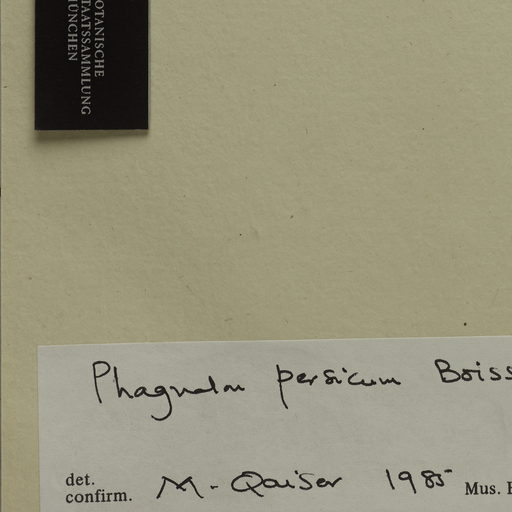 OTANISCHE
TAATSSAMMLUNG
ÜNCHEN
Phagnalon persicum Boiss
det.
confirm. M. Qaiser 1985 Mus. B